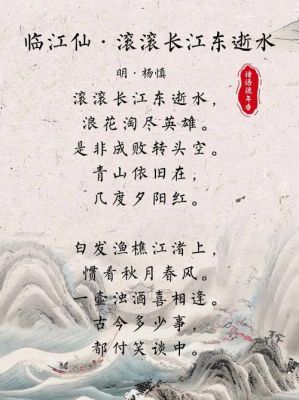 临江仙·滚滚长江东逝水
明·杨慎
滚滚长江东逝水，
浪花淘尽英雄。
是非成败转头空。
青山依旧在，
几度夕阳红。
白发渔樵江渚上，
惯看秋月春风。
一壶浊酒喜相逢。
古今多少事，
都付笑谈中。